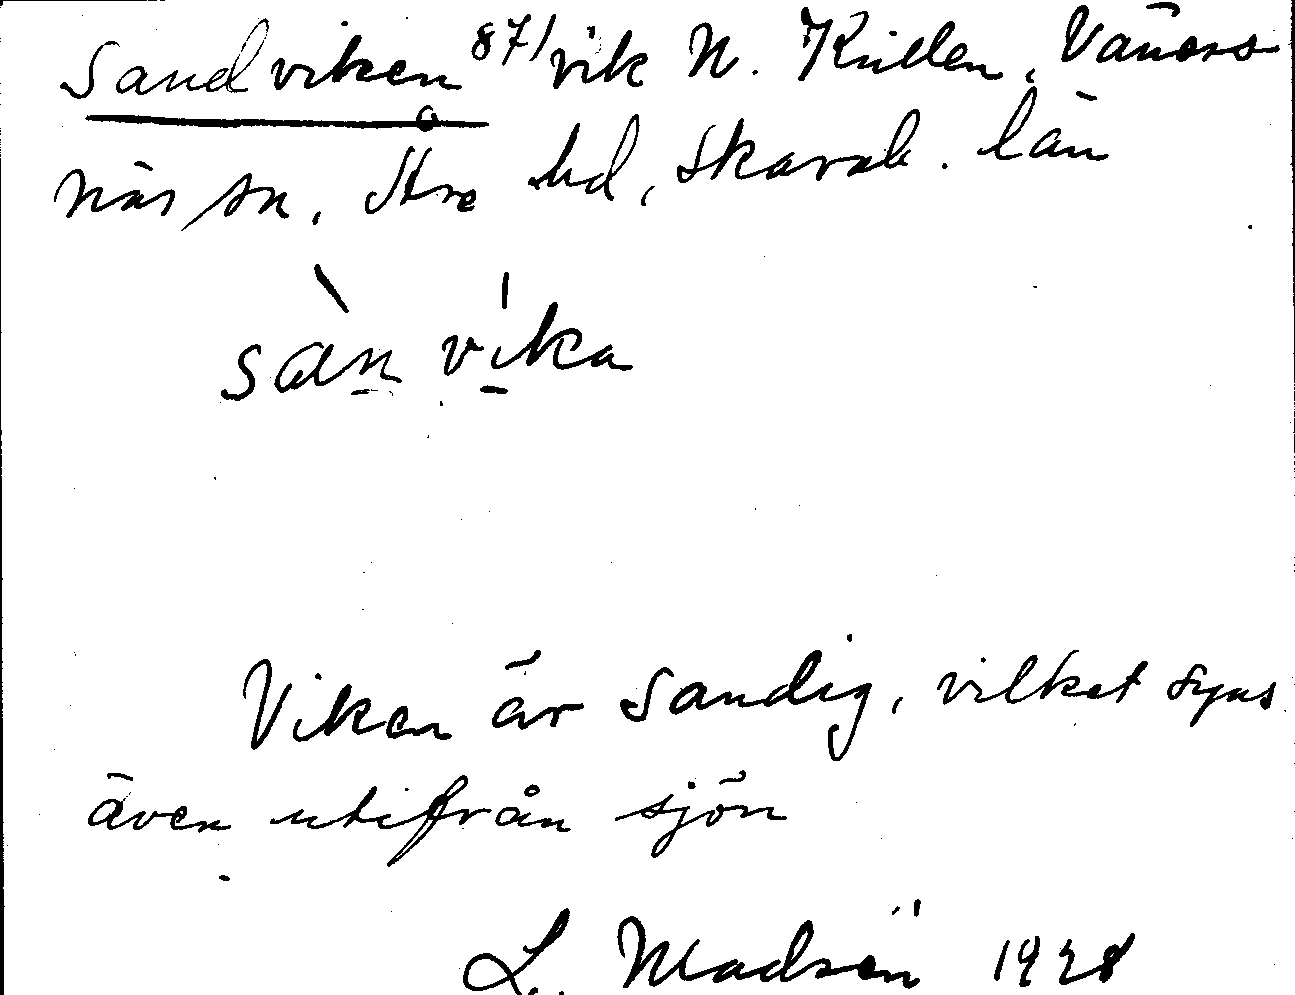 Sandviken 87/ vik N. Kullen, Väners
näs sn, Åse hd, Skarab. län
sàn vika
Viken är sandig, vilket syns
även utifrån sjön
L. Madsén 1928